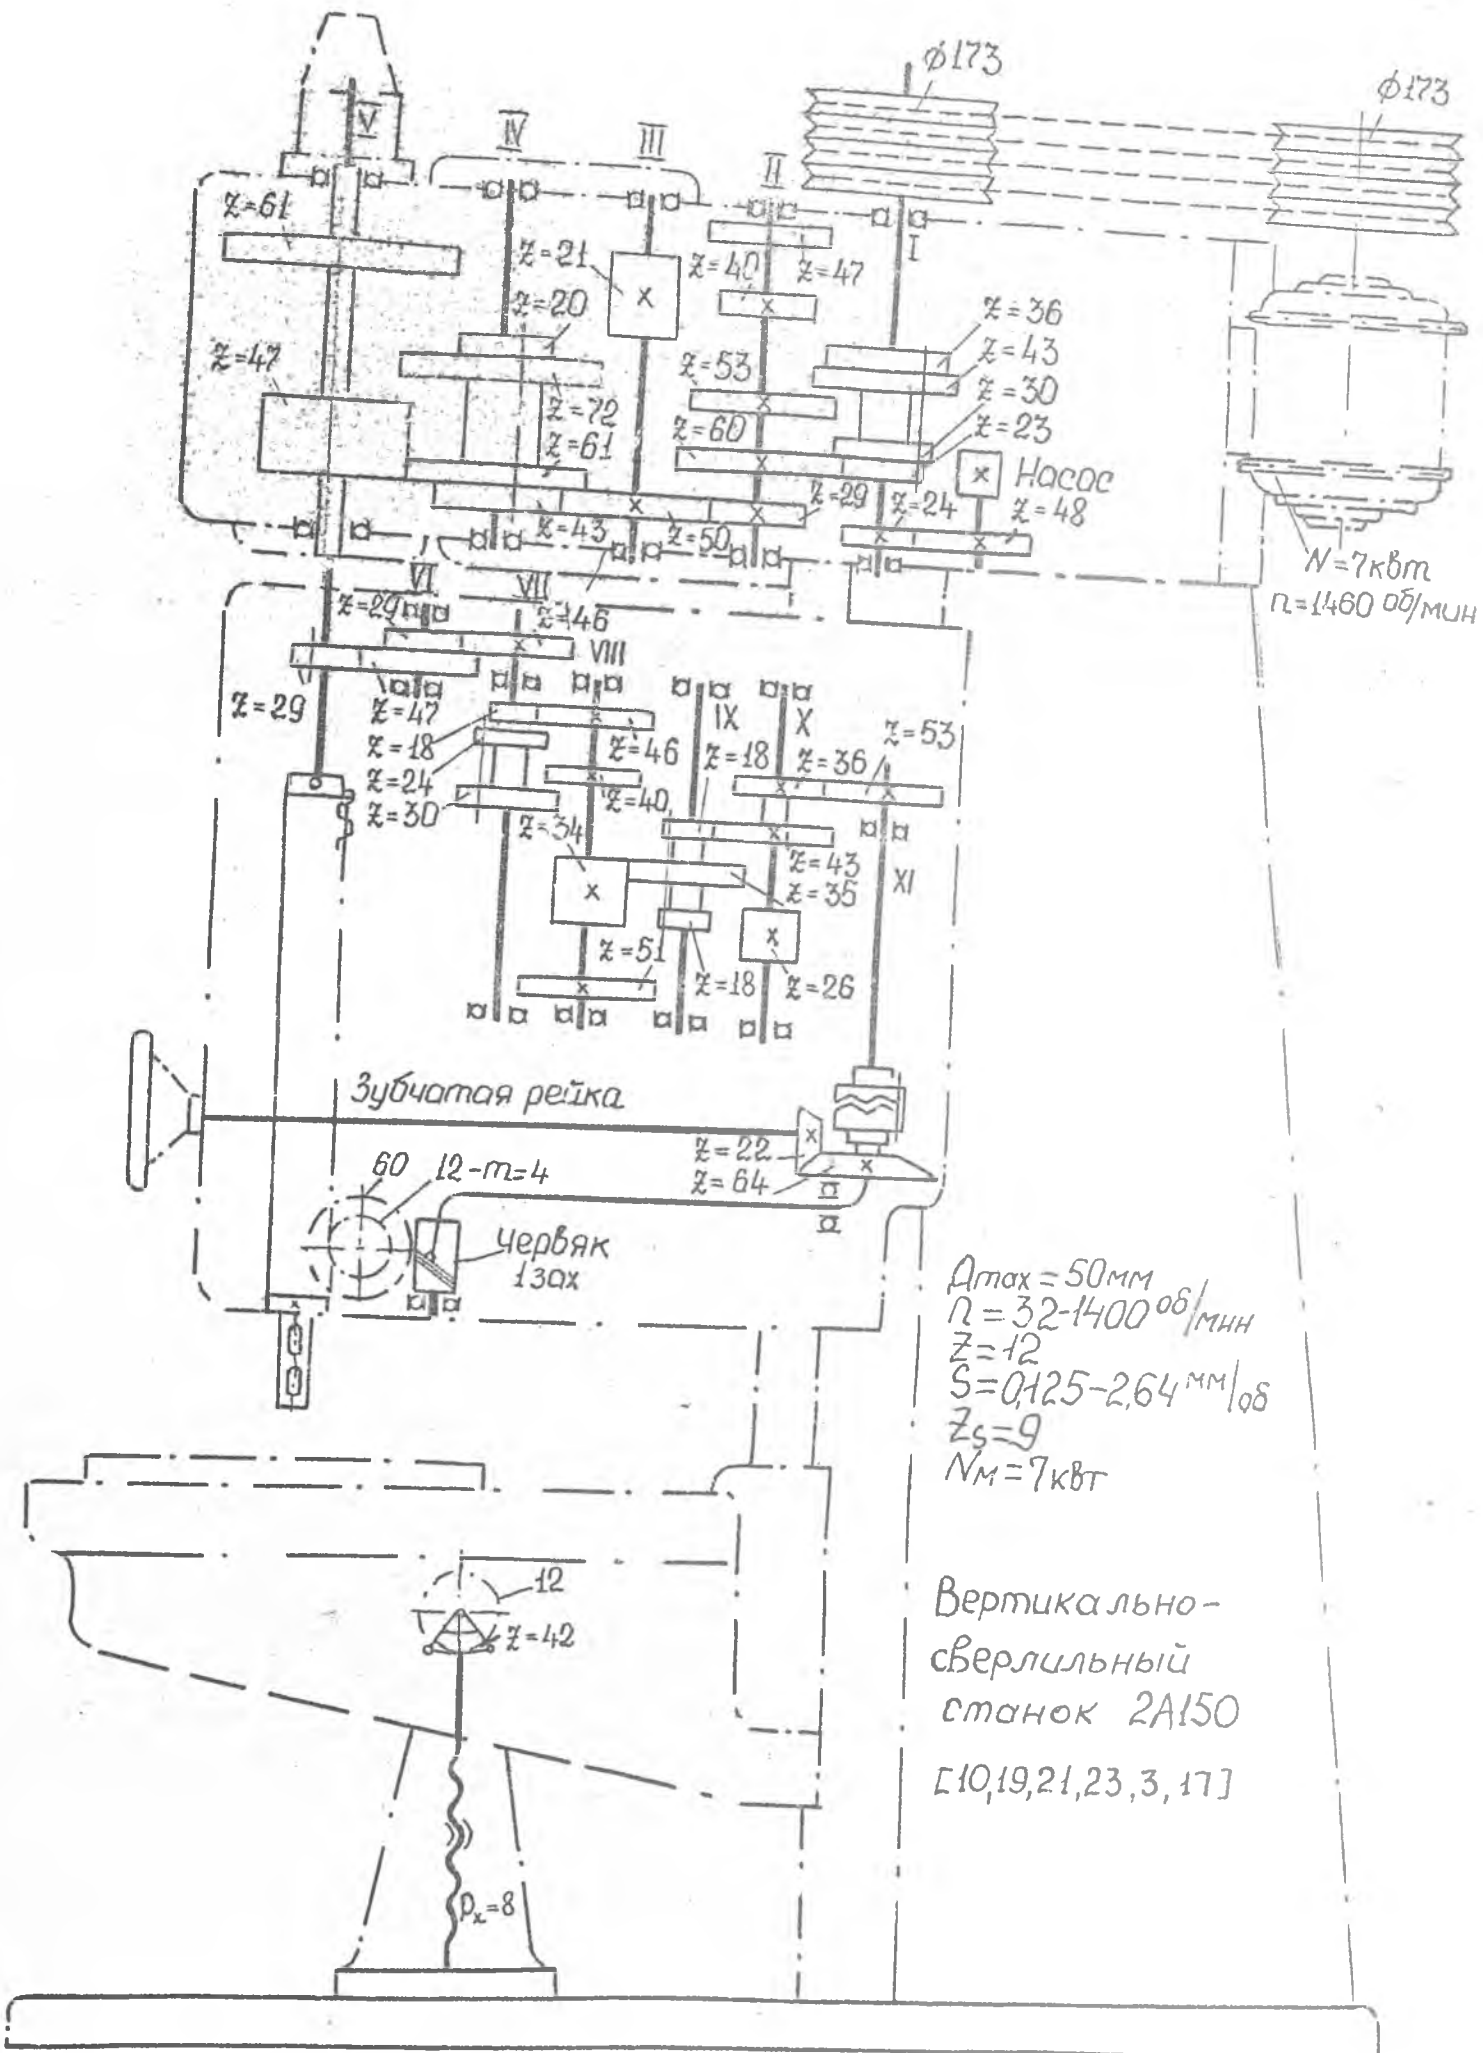 ϕ173
ϕ173
V
IV
III
II
I
Z=61
Z=21
Z=40
Z=47
Z=20
Z=36
Z=43
Z=47
Z=53
Z=30
Z=72
Z=60
Z=23
Z=61
Насос
Z=29
Z=24
Z=48
Z=43
Z=50
N=7квт
n=1460 об/мин
VI
VII
Z=29
Z=46
VIII
Z=29
Z=47
IX
X
Z=53
Z=18
Z=46
Z=18
Z=36
Z=24
Z=40
Z=30
Z=34
Z=43
Z=35
XI
Z=51
Z=18
Z=26
Зубчатая рейка
Z=22
Z=64
60
12-m=4
Червяк
1зах
Дmax=50мм
n=32-1400 об/мин
Z=12
S=0,125-2,64 мм/об
Zs=9
Nм=7квт
12
Z=42
Вертикально-
сверлильный
станок 2А150
[10,19,21,23,3,17]
Px=8